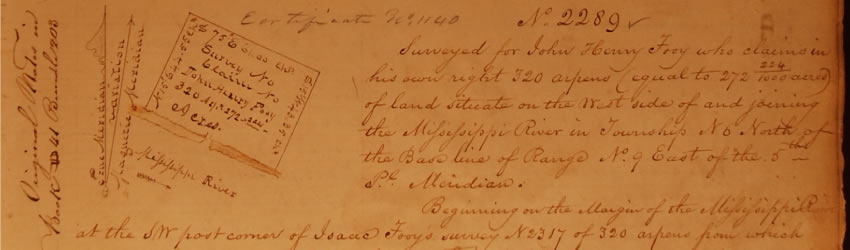 Certificate No 1140
No. 2289
Original Notes in
Book
True Meridian
Variation
Magnetic Meridian
Survey No
Claim No
John Henry Fooy
320
Acres
Mississippi River
Surveyed for John Henry Fooy who claims in
his own right 320 arpens (equal to 272 224/1000 acres)
of land situate on the West side of and joining
the Mississippi River in Township No 6 North of
the Base line of Range No. 9 East of the 5th
Pl. Meridian.
Beginning on the Margin of the Mississippi River
at the SW post corner of Isaac Fooy's survey N 2317 of 320 arpens from which